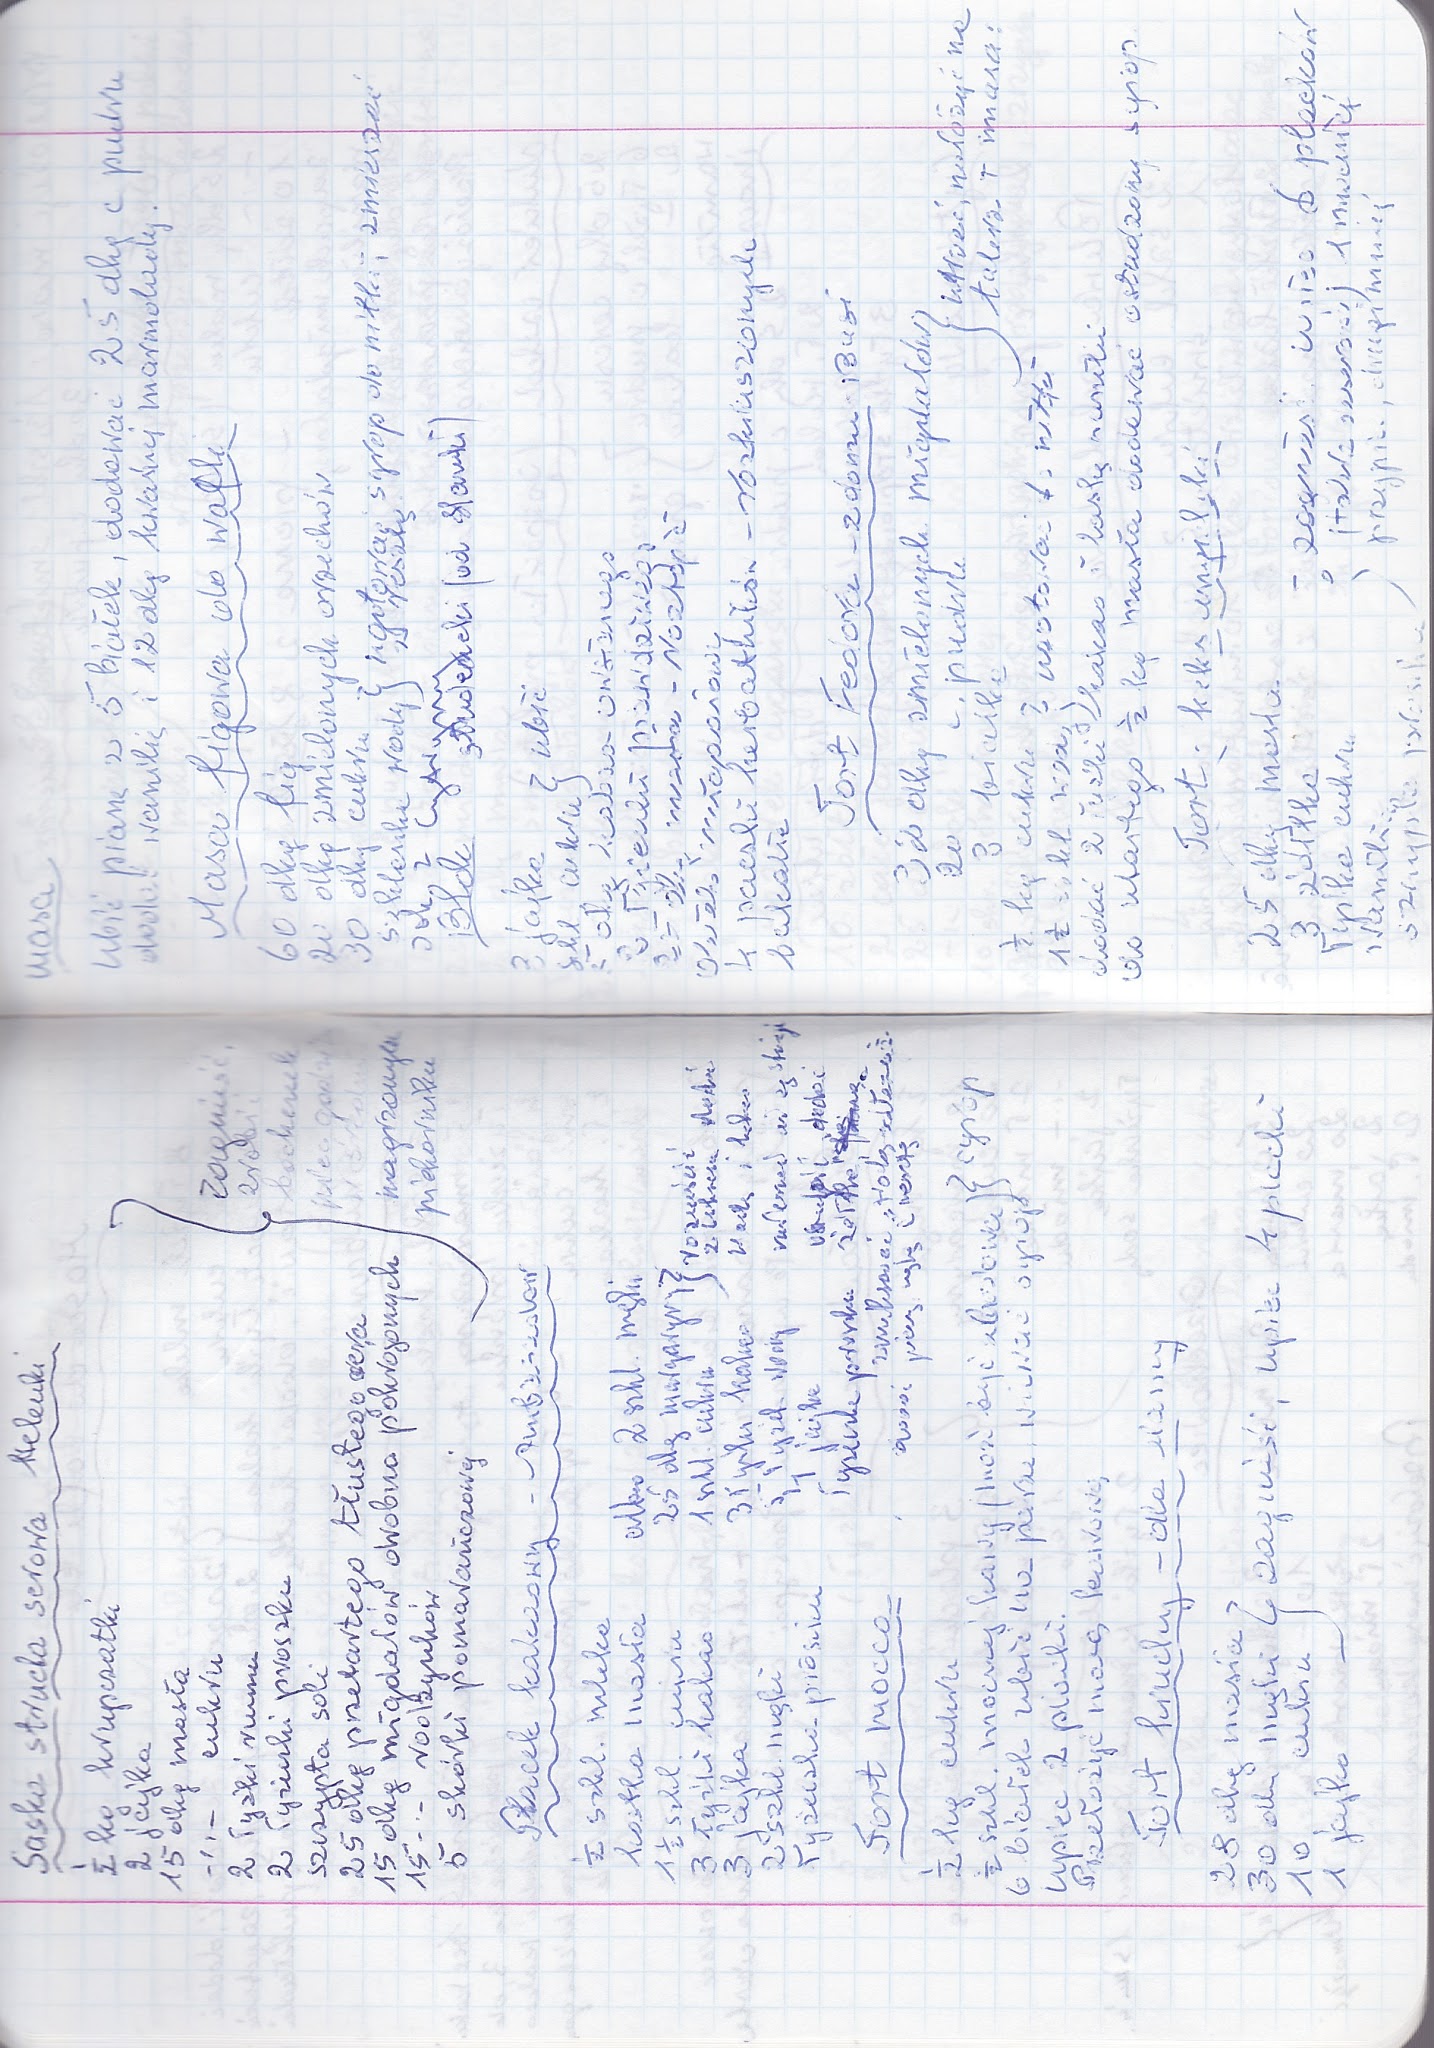 Saska strucla serowa Helenki
1/2 kg krupczatki
2 jajka
15 dkg masła
-"- cukru
2 łyżki rumu
2 łyżeczki proszku
szczypta soli
25 dkg przetartego tłustego sera
15 dkg migdałów drobno pokrojonych
15 -"- rodzynków
5 skórki pomarańczowej
zagnieść,
zrobić
bochenek
piec godz.
w średnio
nagrzanym
piekarniku
Placek kakaowy -
1/2 szkl. mleka
kostka masła
1 1/2 szkl. cukru
3 łyżki kakao
3 jajka
2 szkl. mąki
łyżeczka proszku
albo 2 szkl. mąki
25 dkg margaryny
1 szkl. cukru
3 łyżki kakao
5 łyżek wody
4 jajka
łyżeczka proszku
rozpuścić
z cukrem dodać
wodę i kakao
ostudzić dodać
żółtka,
zmiksować
dodać pianę, mąkę i resztę
Tort mocca
1/2 kg cukru
1/2 szkl. mocnej kawy (może być zbożowa) } syrop
6 białek ubić na parze, wlewać syrop
upiec 2 placki.
Przełożyć masą kawową
Tort kruchy - dla
28 dkg masła
30 dkg mąki
10 " cukru
1 jajko
zagnieść, upiec 4 placki
masa
Ubić pianę z 5 białek, dodawać 25 dkg c pudru
dodać wanilię i 12 dkg kwaśnej marmolady.
Masa figowa do wafli
60 dkg fig
20 dkg zmielonych orzechów
30 dkg cukru
szklanka wody } ugotować syrop do nitki, zmieszać
z resztą
sok z cytryny
Blok studencki (od Sławki)
3 jajka
szkl. cukru } ubić
5 dkg kakao owsianego
2 łyżeczki prawdziwego
25 dkg masła - roztopić
olejek migdałowy
4 paczki herbatników - rozkruszonych
bakalie
Tort Fedora - z domu Busi
32 dkg zmielonych migdałów
20 " pudru
3 białka
utrzeć, nałożyć na
talerz + masa:
1/2 kg cukru
1 1/2 szkl wody } ugotować do nitki
dodać 2 łyżki kakao i laskę wanilii
do utartego 1/2 kg masła dodawać ostudzony syrop
Tort - keks angielski
25 dkg masła
3 żółtka
łyżka cukru
wanilia
szczypta proszku
zagnieść upiec 6 placków
1 mocniej
przypiec, drugi mniej